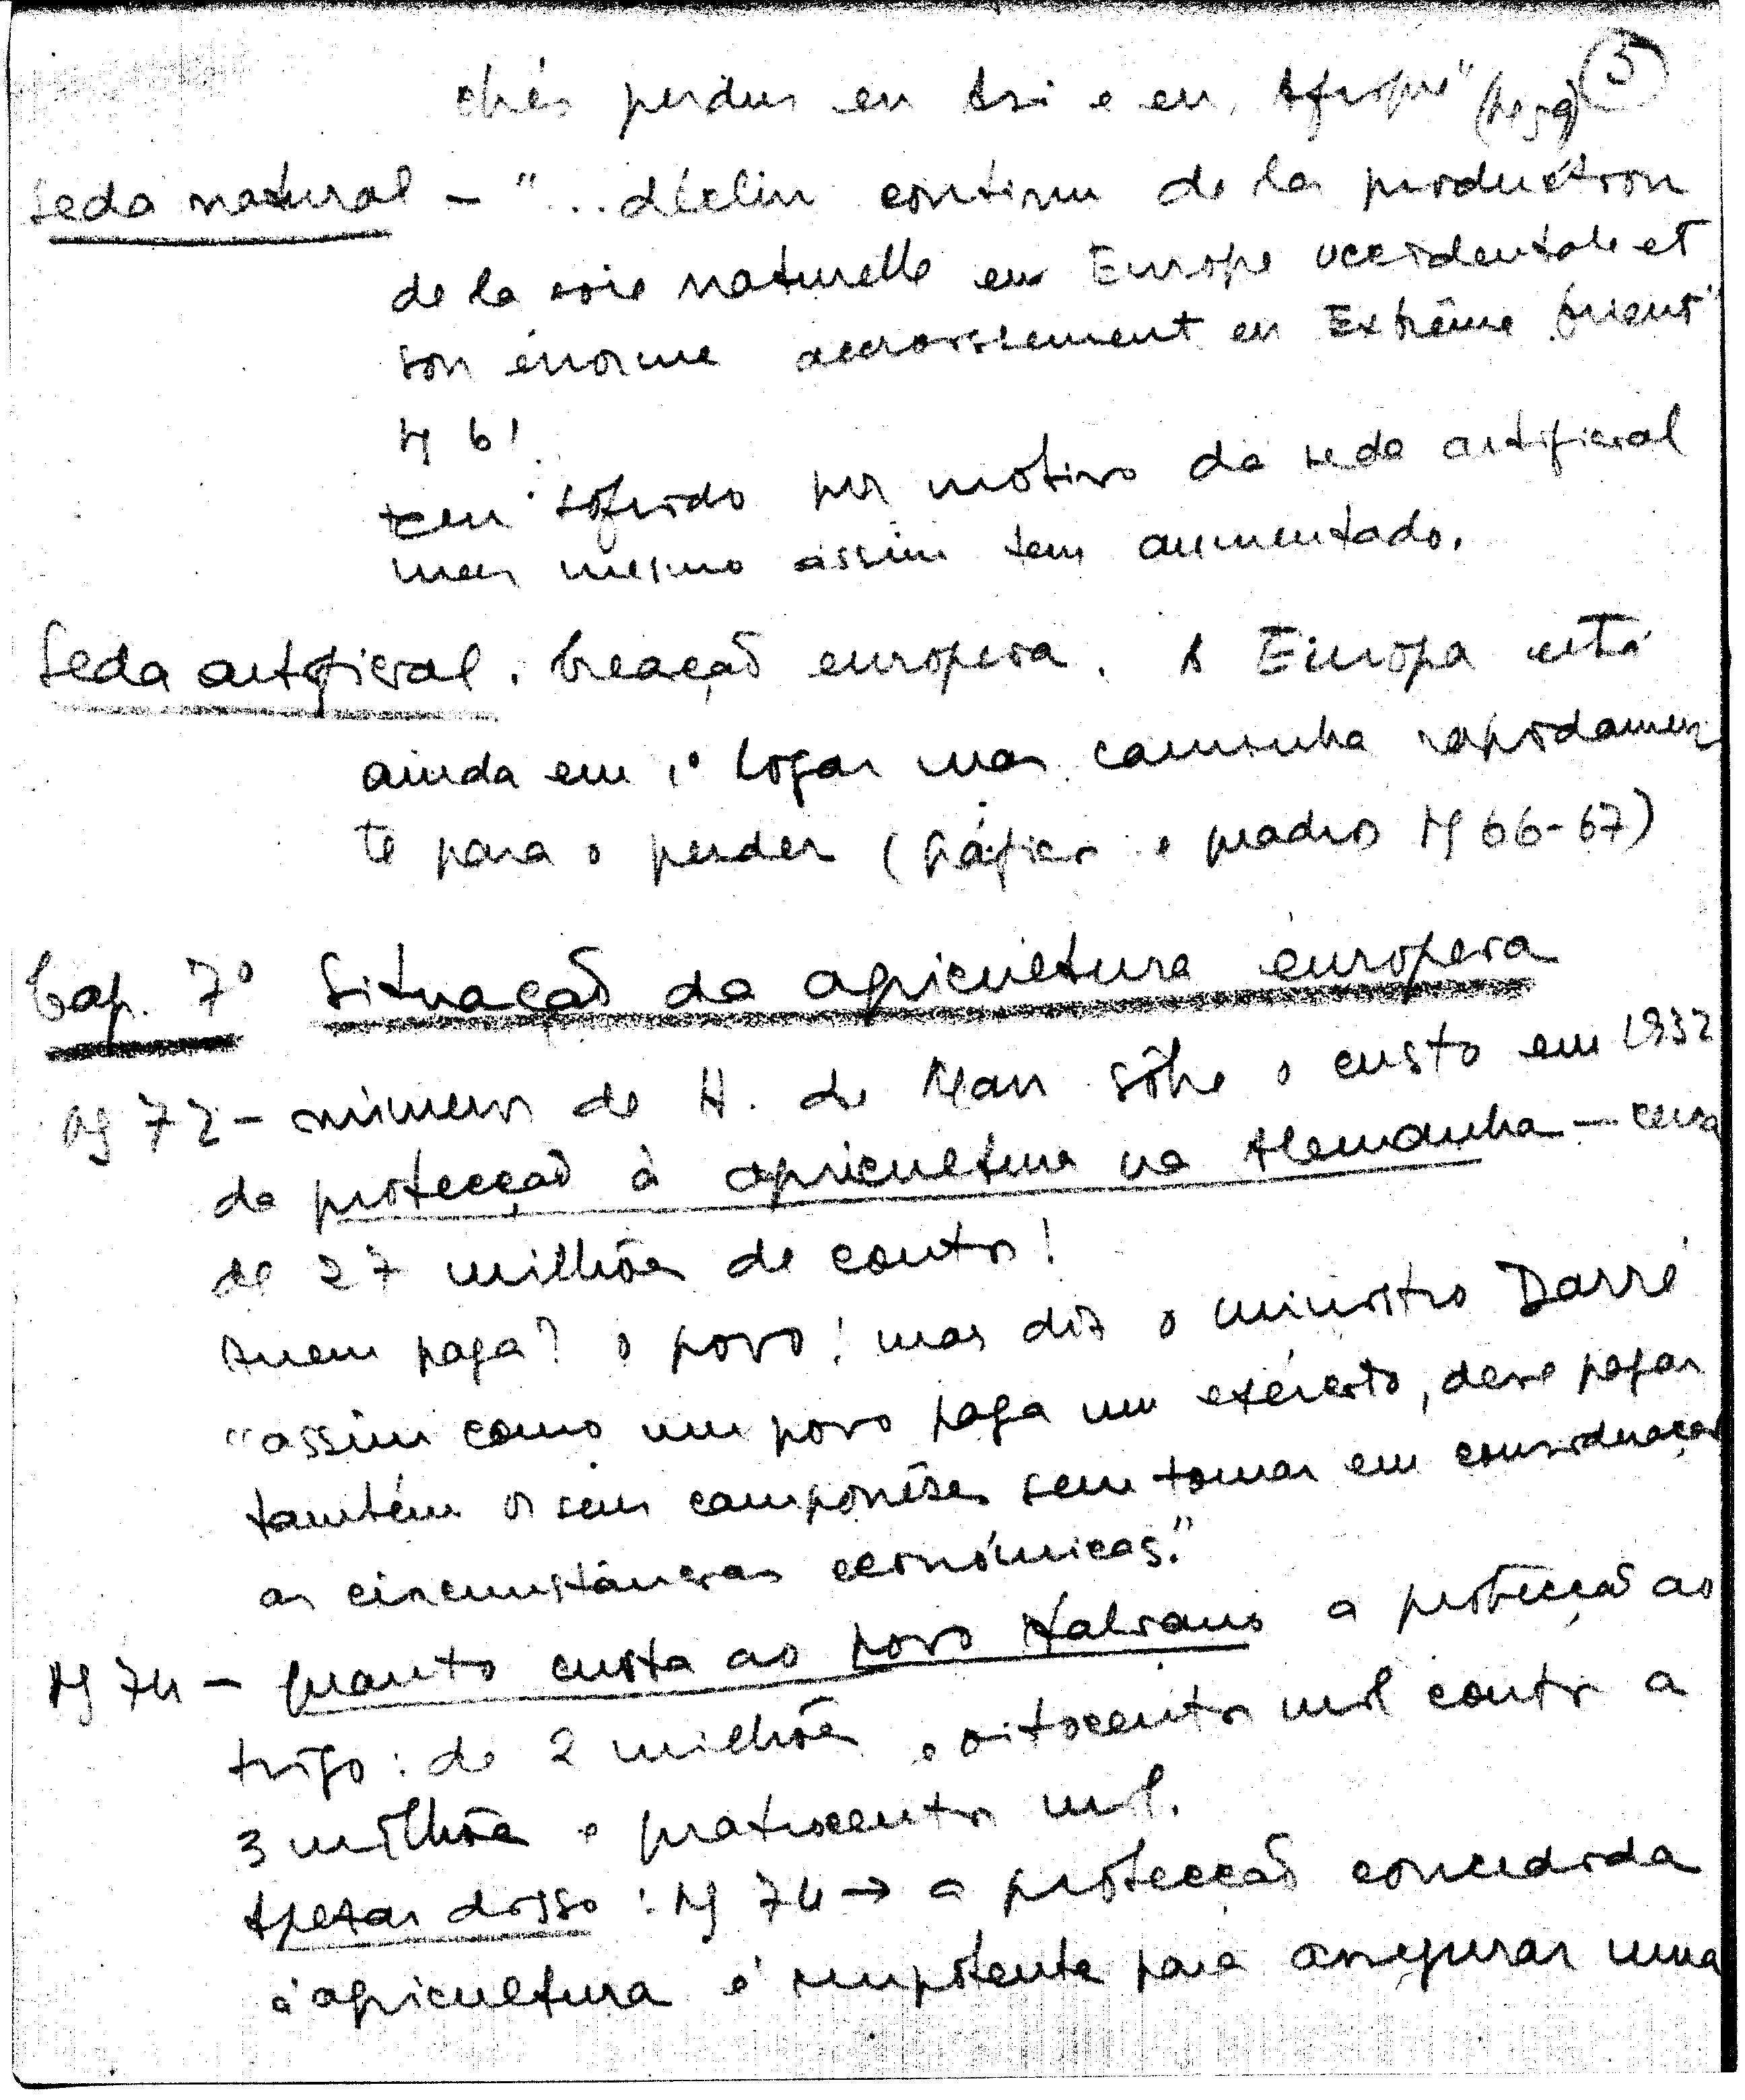 5
chés perdus en Asie e en Afrique" (pg 59)
Seda natural - "... déclin continu de la production
de la soie naturelle en Europe occidentale et
son énorme accroissement en Extrême Orient"
pg 61.
tem sofrido por motivo da seda artificial
mas mesmo assim tem aumentado.
Seda artificial. Creação europeia. A Europa está
ainda em 1º logar mas caminha rapidamen-
te para o perder (Gráfico e quadros pg 66-67)
Cap. 7º Situação da agricultura europeia
pg 72 - números de H. de Man sôbre o custo em 1932
da protecção à agricultura na Alemanha - cerca
de 27 milhões de contos!
Quem paga? o povo! mas diz o ministro Darré
"assim como um povo paga um exército, deve pagar
também os seus camponêses sem tomar em consideração
as circumstâncias económicas."
pg 74 - quanto custa ao povo italiano a protecção ao
trigo: de 2 milhões e oitocentos mil contos a
3 milhões e quatrocentos mil.
Apesar disso: pg 74 → a protecção concedida
à agricultura é impotente para assegurar uma